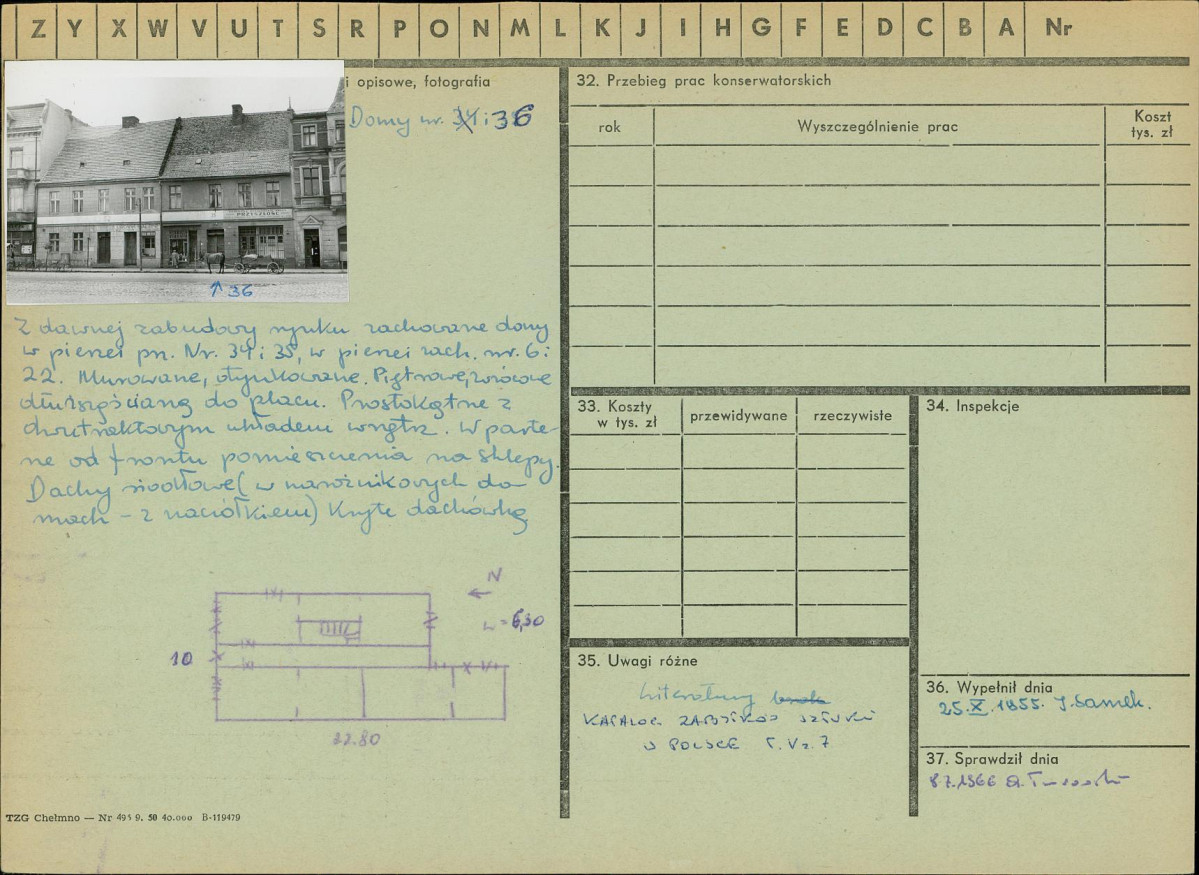 Z Y X W V U T S R P O N M L K J I H G F E D C B A Nr
i opisowe, fotografia
Domy nr. 34 i 36
PRZYSZŁOŚĆ
↑ 36
Z dawnej zabudowy rynku zachowane domy
w pierzei pn. Nr. 34 i 35, w pierzei zach. nr. 6 i
22. Murowane, otynkowane. Piętrowe, zwrócone
dłuższą ścianą do placu. Prostokątne z
dwutraktowym układem wnętrz. W parte-
rze od frontu pomieszczenia na sklepy.
Dachy siodłowe (w narożnikowych do-
mach - z naciółkiem) Kryte dachówką
N
10
22.80
TZG Chełmno — Nr 495 9. 50 40.000 B-119479
32. Przebieg prac konserwatorskich
rok
Wyszczególnienie prac
Koszt
tys. zł
33. Koszty
w tys. zł
przewidywane
rzeczywiste
34. Inspekcje
35. Uwagi różne
Literatury brak
KATALOG ZABYTKÓW SZTUKI
W POLSCE T. V z. 7
36. Wypełnił dnia
25.X.1955. J. Samek.
37. Sprawdził dnia
8 7.1966